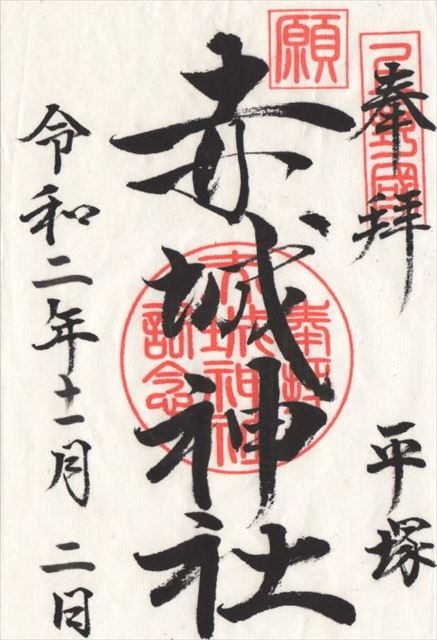 奉拝
平塚
願
赤城神社
奉拝
赤城神社
記念
令和二年十一月二日